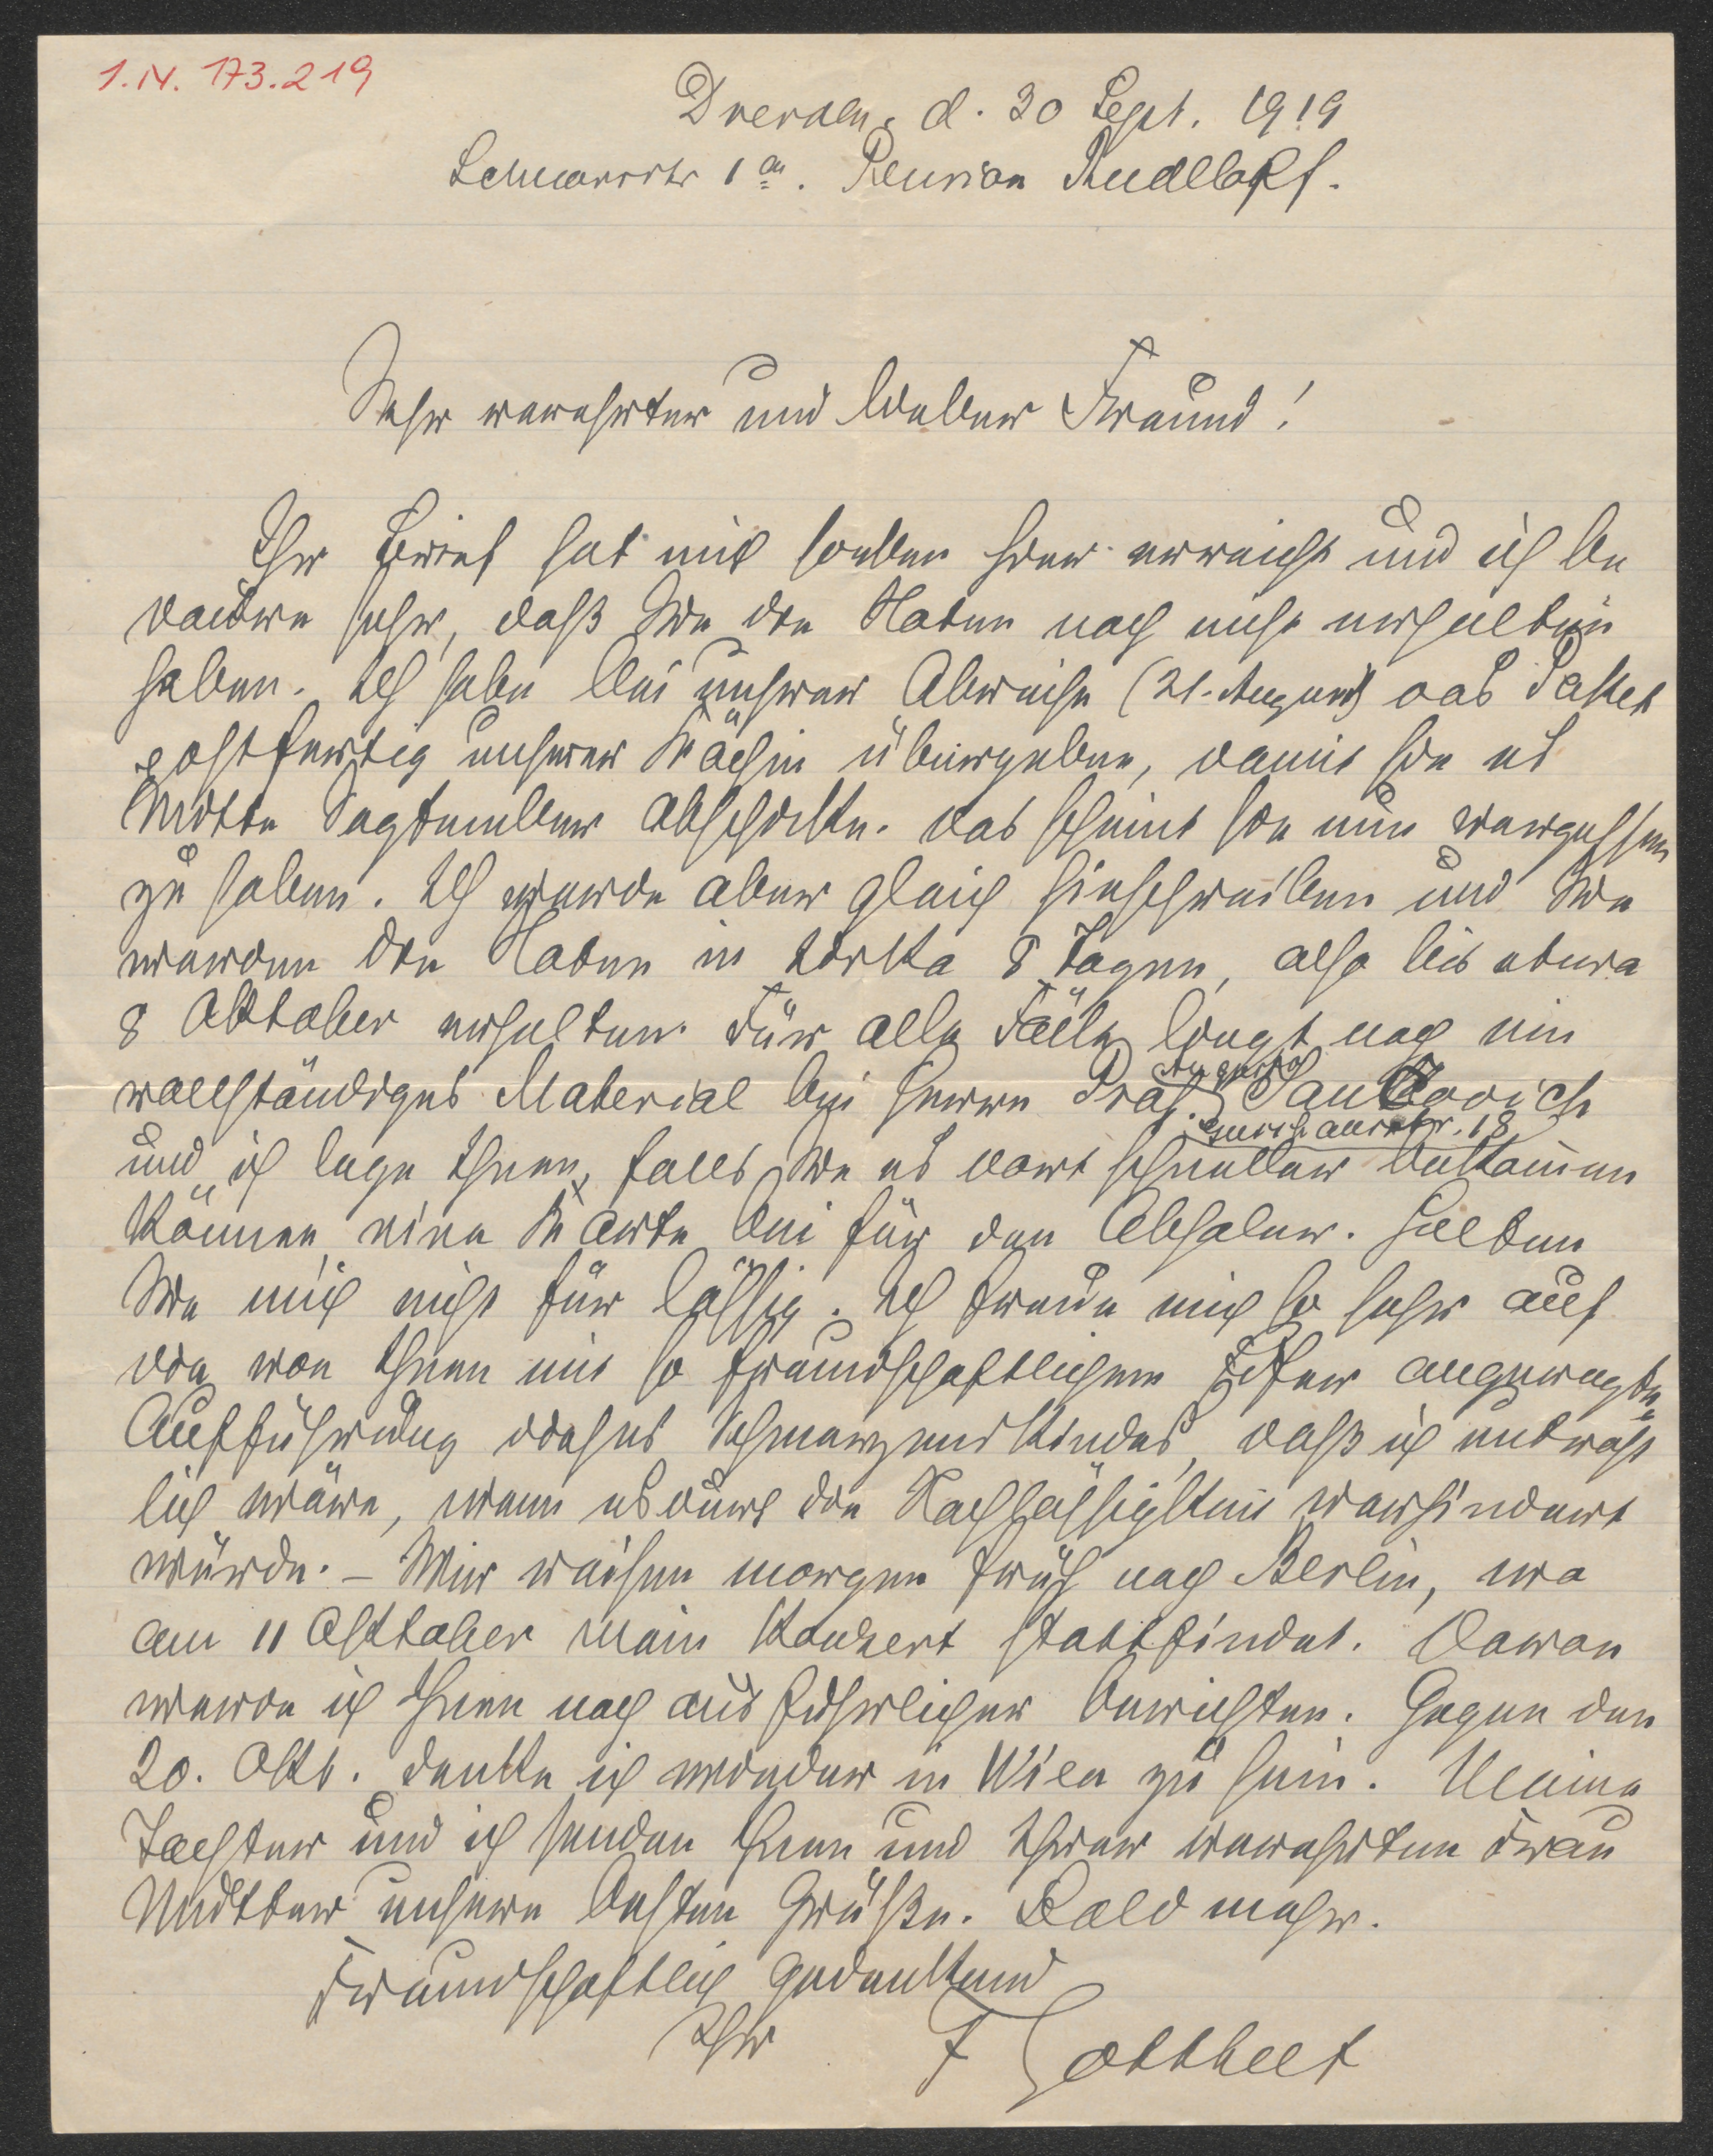 1.N. 173.219
Dresden, d. 30 Sept. 1919
Schnorrstr 1a. Pension Rudeloff.
Sehr verehrter und lieber Freund!
Ihr Brief hat mich soeben hier erreicht und ich be
daure sehr, daß Sie die Noten noch nicht erhalten
haben. Ich habe bei unserer Abreise (21. August) das Packet
postfertig unserer Köchin übergeben, damit sie es
Mitte September abschicke. Das scheint sie nun vergessen
zu haben. Ich werde aber gleich hinschreiben und Sie
werden die Noten in zirka 8 Tagen, also bis etwa
8 Oktober erhalten. Für alle Fälle liegt noch ein
vollständiges Material bei Herrn Prof.
und ich lege Ihnen, falls Sie es dort schneller bekommen
können eine Karte bei für den Abholer. Halten
Sie mich nicht für lässig. Ich freue mich so sehr auf
die von Ihnen mit so freundschaftlichem Eifer angeregte
Aufführung dieses Schmerzenskindes, daß ich untröst
lich wäre, wenn es durch die Nachlässigkeit verhindert
würde. – Wir reisen morgen früh nach Berlin, wo
am 11 Oktober mein Konzert stattfindet. Davon
werde ich Ihnen noch ausführlicher berichten. Gegen den
20. Okt. denke ich wieder in Wien zu sein. Meine
Tochter und ich senden Ihnen und Ihrer verehrten Frau
Mutter unsere besten Grüße. Bald mehr.
Freundschaftlich gedenkend
Ihr F Gotthelf